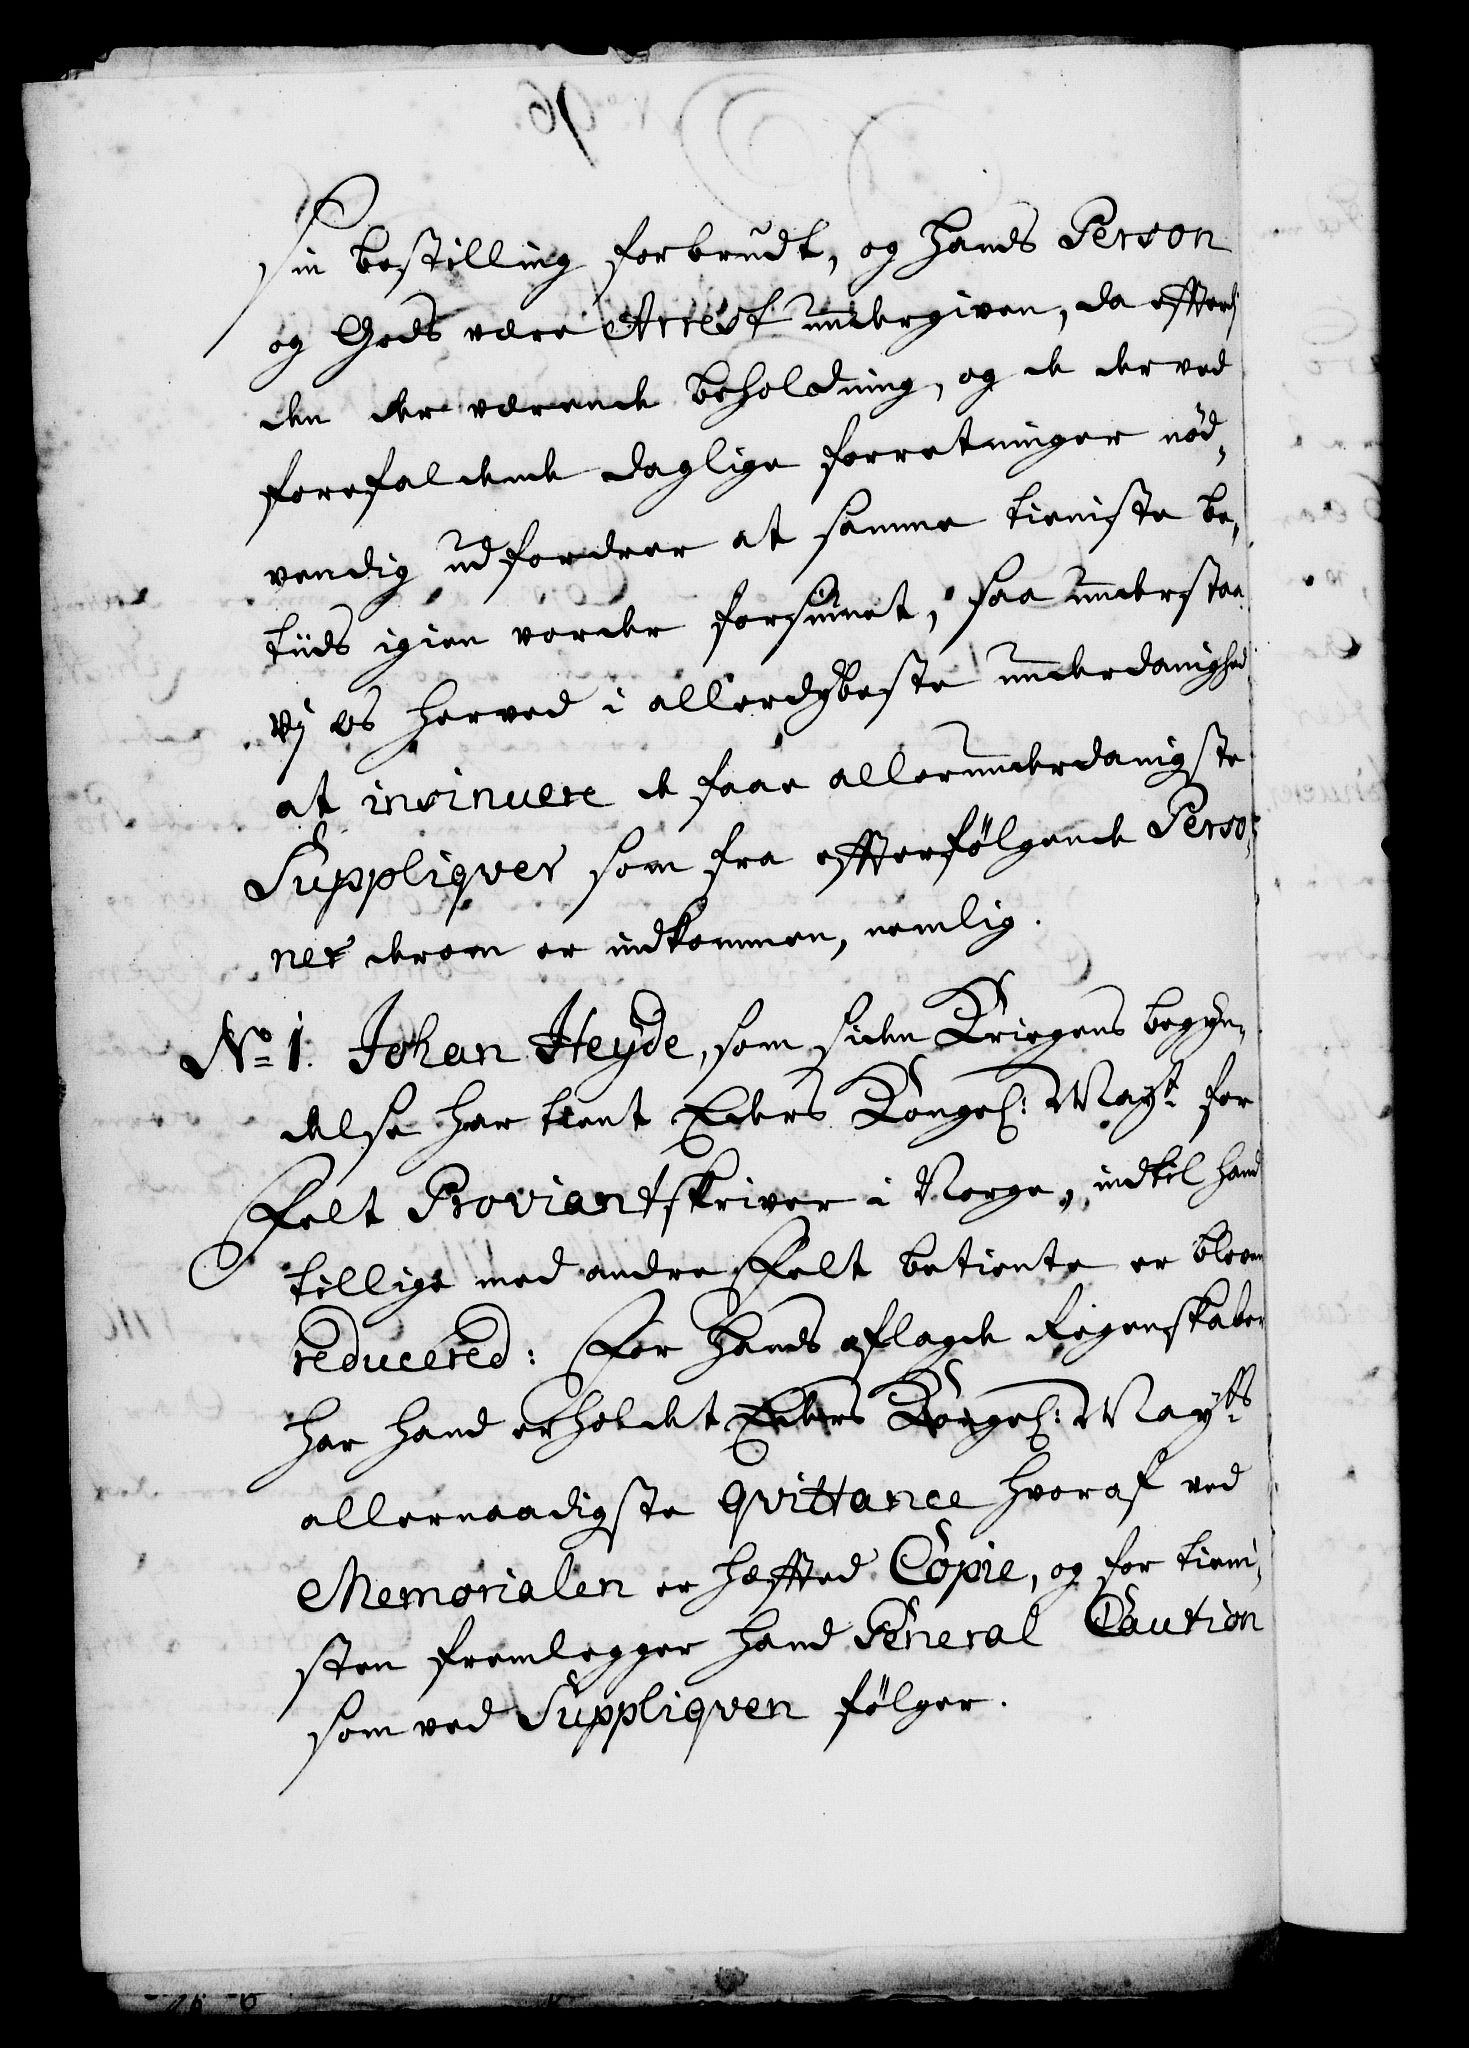 sin bestilling forbrudt, og hands Person
og Gods være Arrest undergiven, da efftersom
den der værende beholdning, og de der ved
forefaldende daglige forretninger nød„
vendig udfordrer at samme tieniste be„
tiids igien vorder forsiunet, saa understaa
vj os herved i allerdybeste underdanighed
at insinuere de faae allerunderdanigste
Suppliqver som fra effterfølgende Perso„
ner derom er indkommen, nemlig.
No 1. Johan Heyde, som siden Kriegens begyn„
delse har tient Eders Kongel: Mayt for
Felt Proviantskriver i Norge, indtil hand
tillige med andre Felt betiente er bleven
reducered: For hands aflagde Regenskaber
har hand erholdet Eders Kongel: Mayts
allernaadigste qvittance hvoraf ved
Memorialen er heffted Copie, og for tieni„
sten fremlegger hand General Caution
som ved Suppliqven følger.